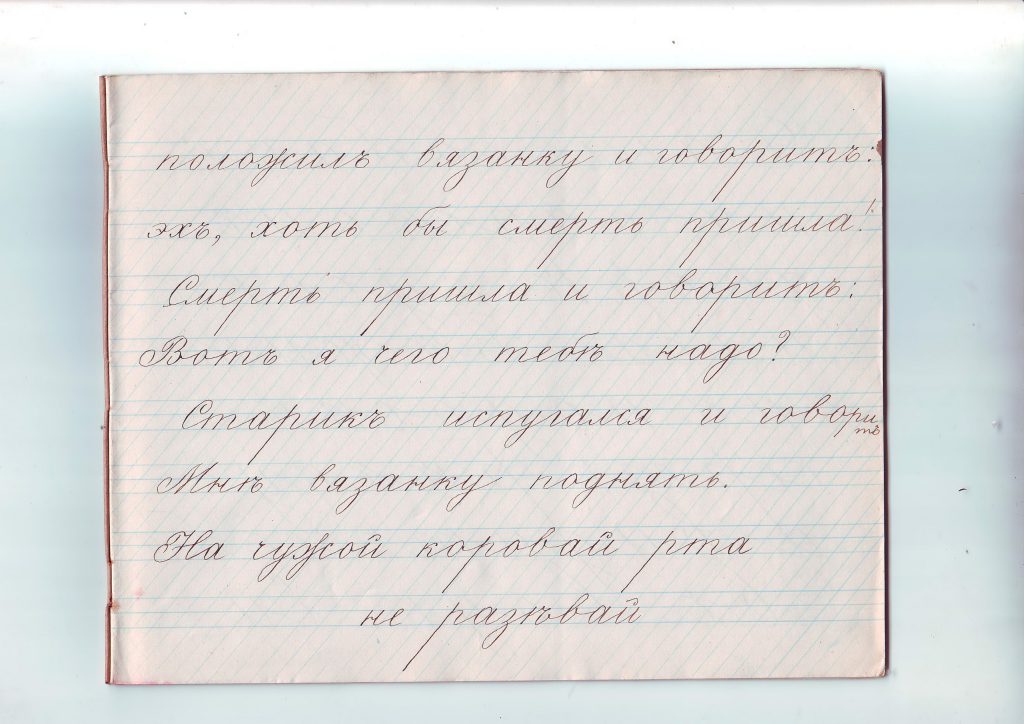 положилъ вязанку и говоритъ:
эхъ, хоть бы смерть пришла!
Смерть пришла и говоритъ:
Вотъ я чего тебѣ надо?
Старикъ испугался и говоритъ
Мнѣ вязанку поднять.
На чужой коровай рта
не разѣвай